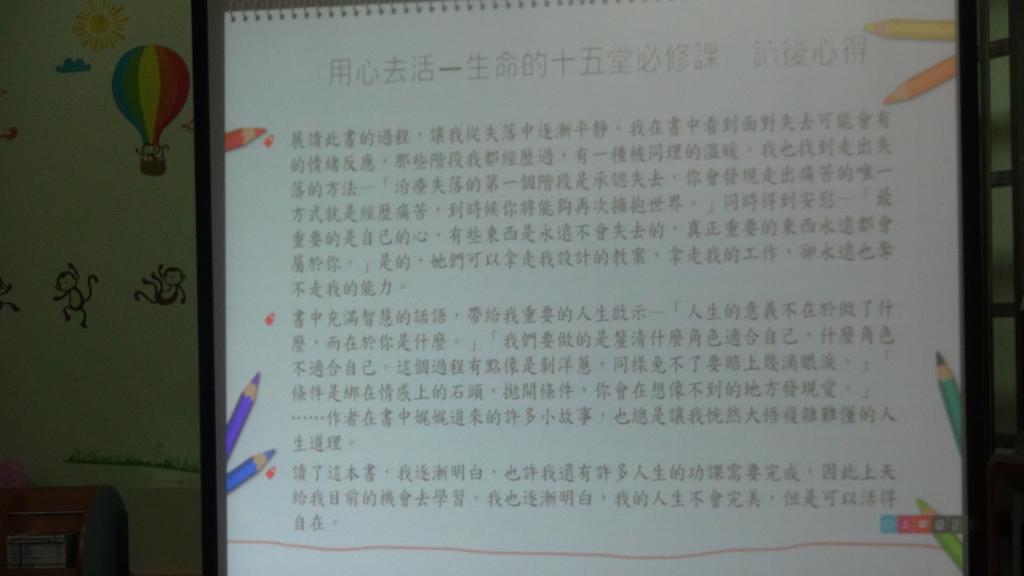 用心去活—生命的十五堂必修課 讀後心得
展讀此書的過程，讓我從失落中逐漸平靜。我在書中看到面對失去可能會有
的情緒反應，那些階段我都經歷過，有一種被同理的溫暖。我也找到走出失
落的方法—「治療失落的第一個階段是承認失去，你會發現走出痛苦的唯一
方式就是經歷痛苦，到時候你將能夠再次擁抱世界。」同時得到安慰—「最
重要的是自己的心，有些東西是永遠不會失去的，真正重要的東西永遠都會
屬於你。」是的，她們可以拿走我設計的教案，拿走我的工作，卻永遠也奪
不走我的能力。
書中充滿智慧的話語，帶給我重要的人生啟示—「人生的意義不在於做了什
麼，而在於你是什麼。」「我們要做的是釐清什麼角色適合自己，什麼角色
不適合自己。這個過程有點像是剝洋蔥，同樣免不了要賠上幾滴眼淚。」「
條件是綁在情感上的石頭，拋開條件，你會在想像不到的地方發現愛。」
……作者在書中娓娓道來的許多小故事，也總是讓我恍然大悟複雜難懂的人
生道理。
讀了這本書，我逐漸明白，也許我還有許多人生的功課需要完成，因此上天
給我目前的機會去學習。我也逐漸明白，我的人生不會完美，但是可以活得
自在。